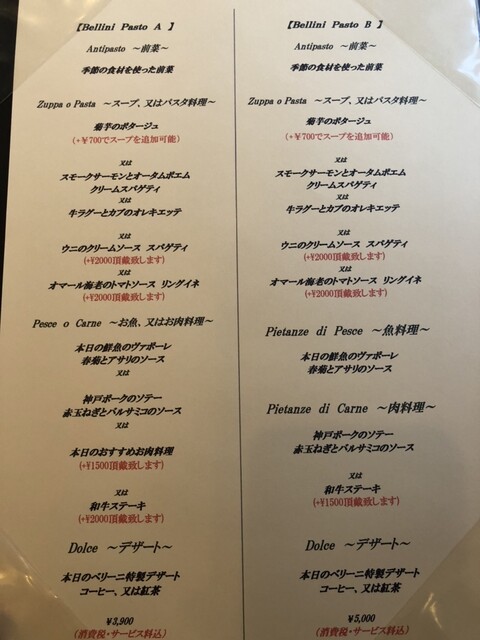 【Bellini Pasto A 】
Antipasto ～前菜～
季節の食材を使った前菜
Zuppa o Pasta ～スープ、又はパスタ料理～
菊芋のポタージュ
(+￥700でスープを追加可能)
又は
スモークサーモンとオータムポエム
クリームスパゲティ
又は
牛ラグーとカブのオレキエッテ
又は
ウニのクリームソース スパゲティ
(+¥2000頂戴致します)
又は
オマール海老のトマトソース リングイネ
(+¥2000頂戴致します)
Pesce o Carne ～お魚、又はお肉料理～
本日の鮮魚のヴァポーレ
春菊とアサリのソース
又は
神戸ポークのソテー
赤玉ねぎとバルサミコのソース
又は
本日のおすすめお肉料理
(+¥1500頂戴致します)
又は
和牛ステーキ
(+¥2000頂戴致します)
Dolce ～デザート～
本日のベリーニ特製デザート
コーヒー、又は紅茶
¥3,900
(消費税・サービス料込)
【Bellini Pasto B 】
Antipasto ～前菜～
季節の食材を使った前菜
Zuppa o Pasta ～スープ、又はパスタ料理～
菊芋のポタージュ
(+￥700でスープを追加可能)
又は
スモークサーモンとオータムポエム
クリームスパゲティ
又は
牛ラグーとカブのオレキエッテ
又は
ウニのクリームソース スパゲティ
(+¥2000頂戴致します)
又は
オマール海老のトマトソース リングイネ
(+¥2000頂戴致します)
Pietanze di Pesce ～魚料理～
本日の鮮魚のヴァポーレ
春菊とアサリのソース
Pietanze di Carne ～肉料理～
神戸ポークのソテー
赤玉ねぎとバルサミコのソース
又は
和牛ステーキ
(+¥1500頂戴致します)
Dolce ～デザート～
本日のベリーニ特製デザート
コーヒー、又は紅茶
¥5,000
(消費税・サービス料込)